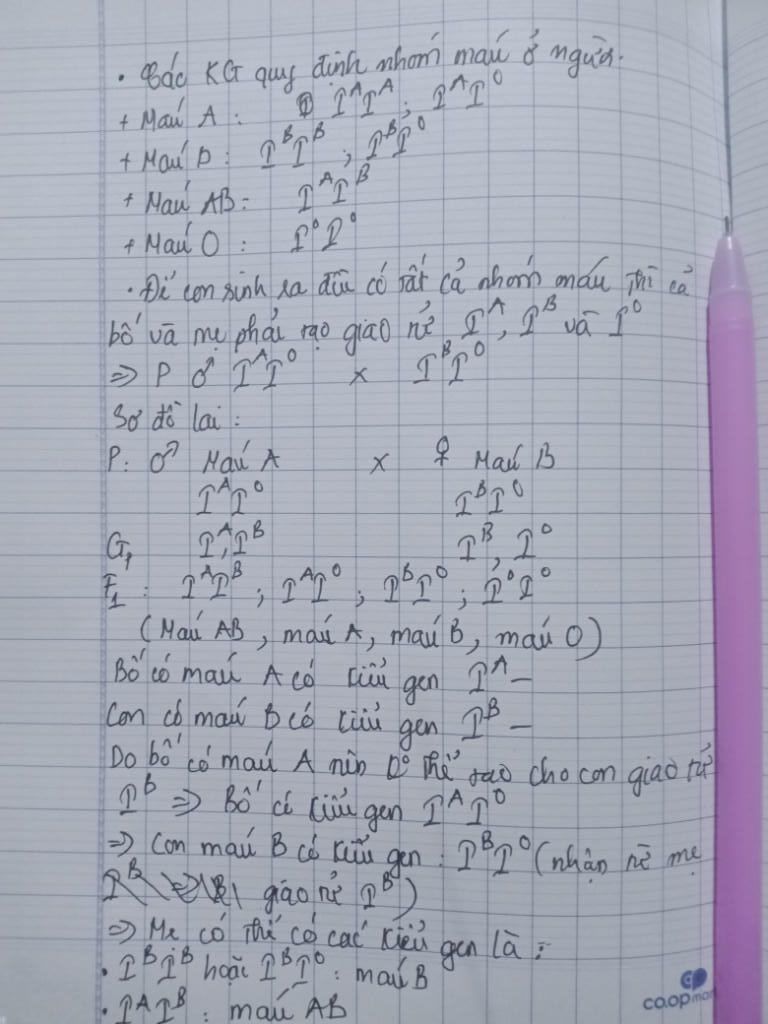 • Các KG quy định nhóm máu ở người.
+ Máu A: I^A I^A ; I^A I^O
+ Máu B: I^B I^B ; I^B I^O
+ Máu AB: I^A I^B
+ Máu O: I^O I^O
• Để con sinh ra đều có tất cả nhóm máu thì cả
bố và mẹ phải tạo giao tử I^A, I^B và I^O
=> P ♂ I^A I^O x I^B I^O
Sơ đồ lai:
P: ♂ Máu A x ♀ Máu B
I^A I^O I^B I^O
G₁ I^A, I^B I^B, I^O
F₁: I^A I^B ; I^A I^O ; I^B I^O ; I^O I^O
(Máu AB, máu A, máu B, máu O)
Bố có máu A có kiểu gen I^A –
Con có máu B có kiểu gen I^B –
Do bố có máu A nên thể tạo cho con giao tử
I^B => Bố có kiểu gen I^A I^O
=> Con máu B có kiểu gen: I^B I^O (nhận từ mẹ
giao tử I^B)
=> Mẹ có thể có các kiểu gen là:
• I^B I^B hoặc I^B I^O: máu B
• I^A I^B: máu AB
co.opmar